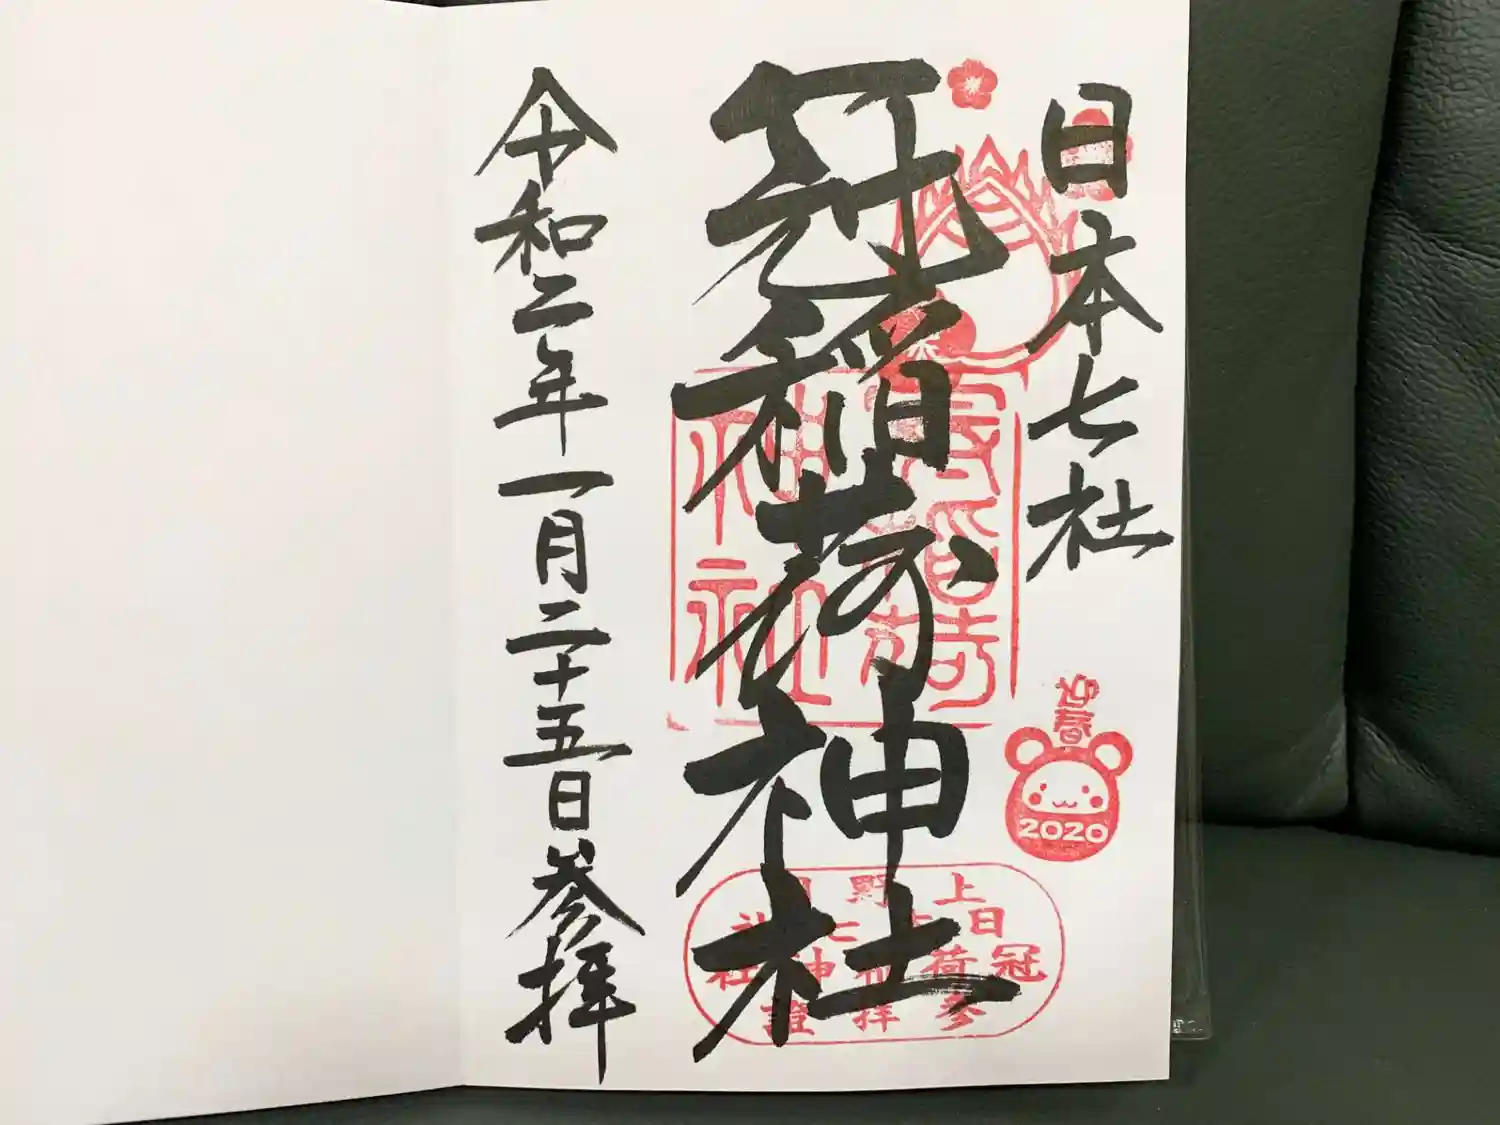 日本七社
冠稲荷神社
令和二年一月二十五日参拝
冠稲荷
神社
迎春
2020
上野
日七社
冠荷神社
参拝證